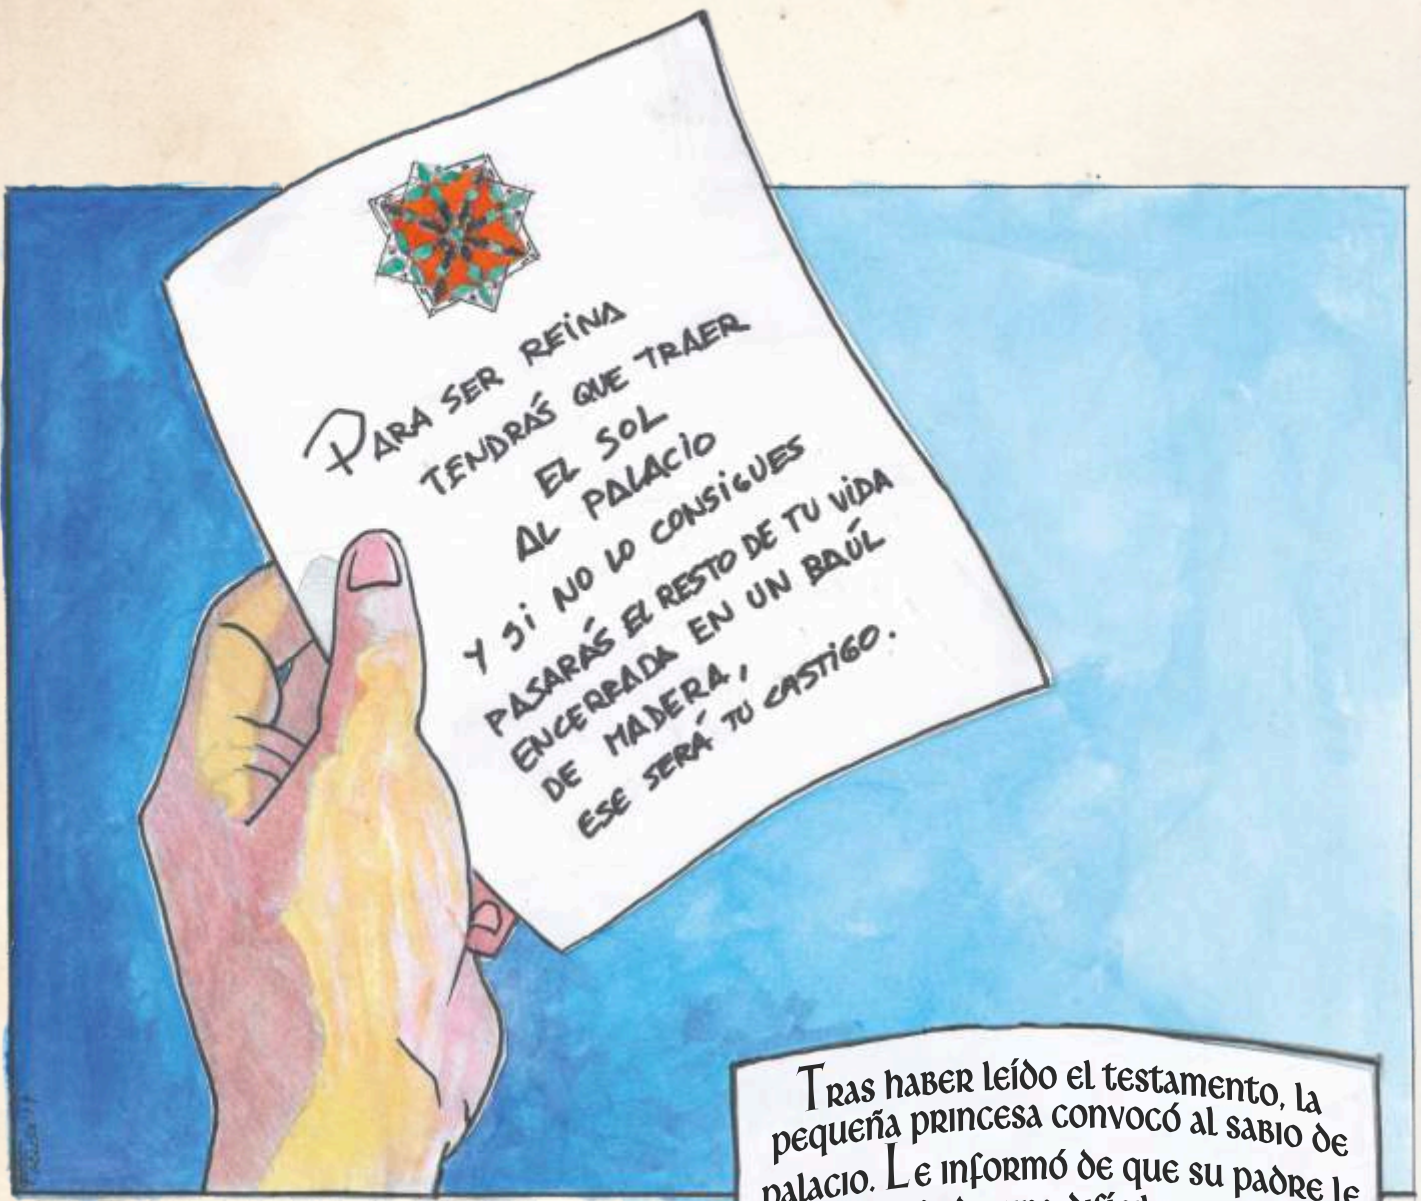 PARA SER REINA
TENDRÁS QUE TRAER
EL SOL
AL PALACIO
Y SI NO LO CONSIGUES
PASARÁS EL RESTO DE TU VIDA
ENCERRADA EN UN BAÚL
DE MADERA,
ESE SERÁ TU CASTIGO.
Tras haber leído el testamento, la
pequeña princesa convocó al sabio de
palacio. Le informó de que su padre le